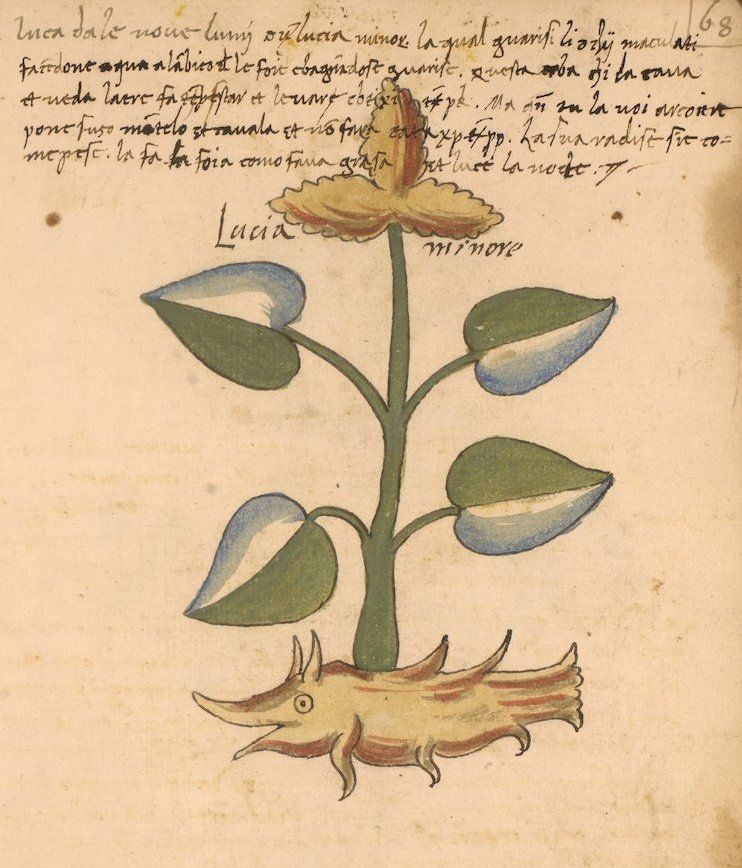 168
luca da le nove lumj ov lucia minor. la qual guarisi li ochij maculati
facedone aqua a lãbico de le foie e bagnãdose guarise. questa erba chi la cava
et veda laere fa tẽpestar et levare
Ma qñ tu la voi arcoiere
pone suso mãtelo et cavala et nõ fara La sua radise sie co-
me pesc. la fa la foia como fava grasa et luce la nocte.
Lucia minore